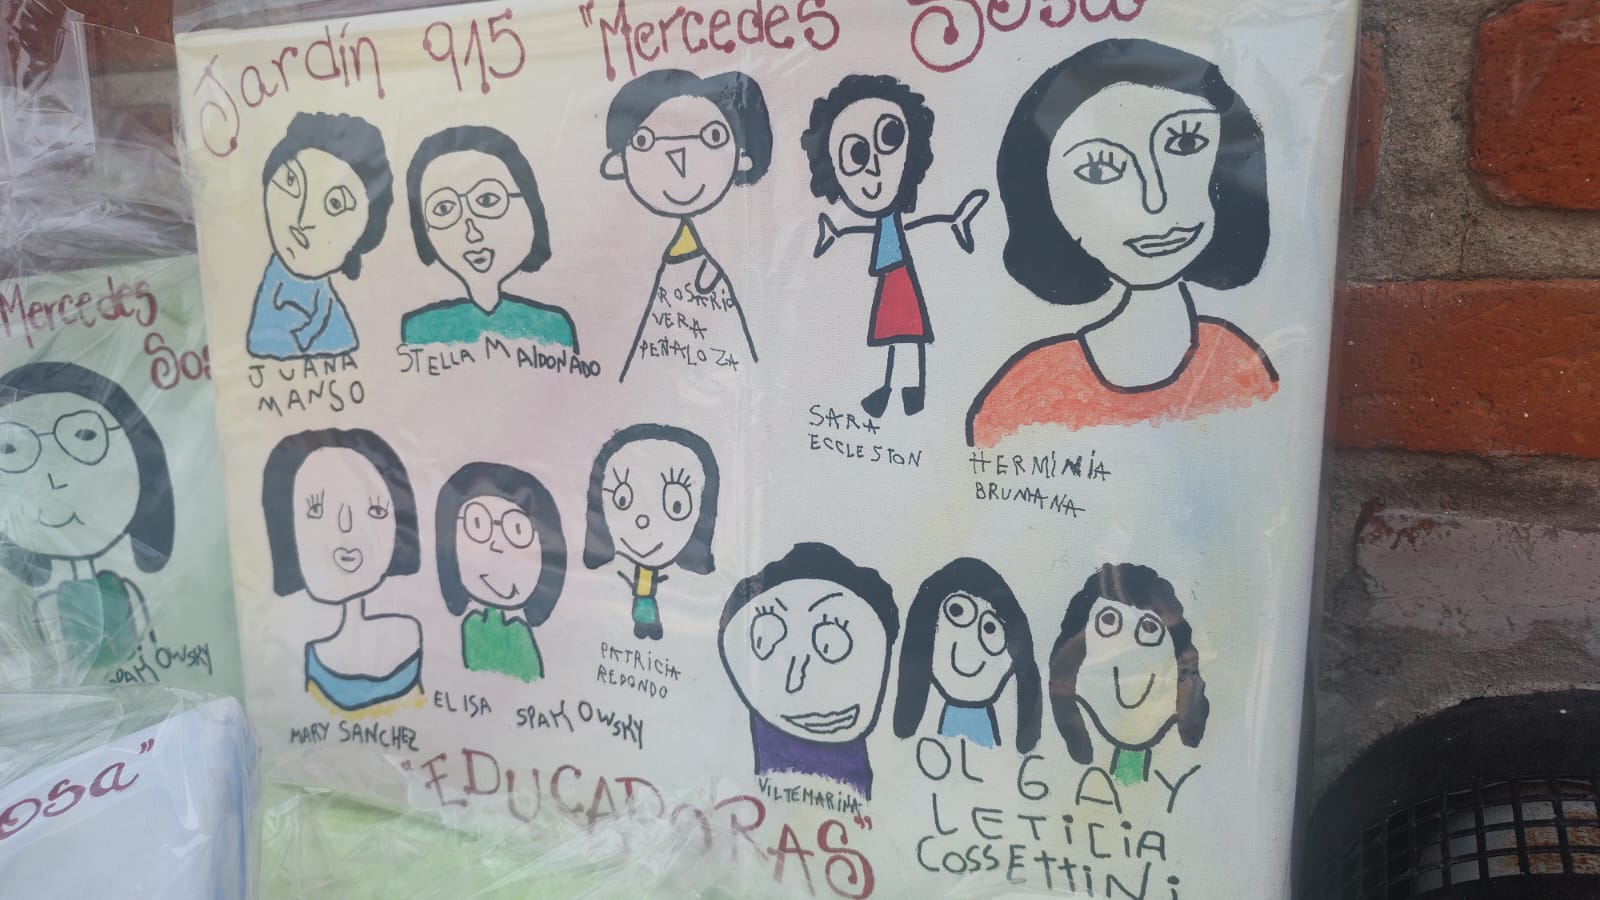 Jardín 915 "Mercedes Sosa
JUANA
MANSO
STELLA MALDONADO
ROSARIO
VERA
PEÑALOZA
SARA
ECCLESTON
HERMINIA
BRUMANA
MARY SANCHEZ
ELISA SPAKOWSKY
PATRICIA
REDONDO
VILTEMARINA
OLGA Y
LETICIA
COSSETTINI
"EDUCADORAS"
Mercedes
Sos
SPAKOWSKY
osa"